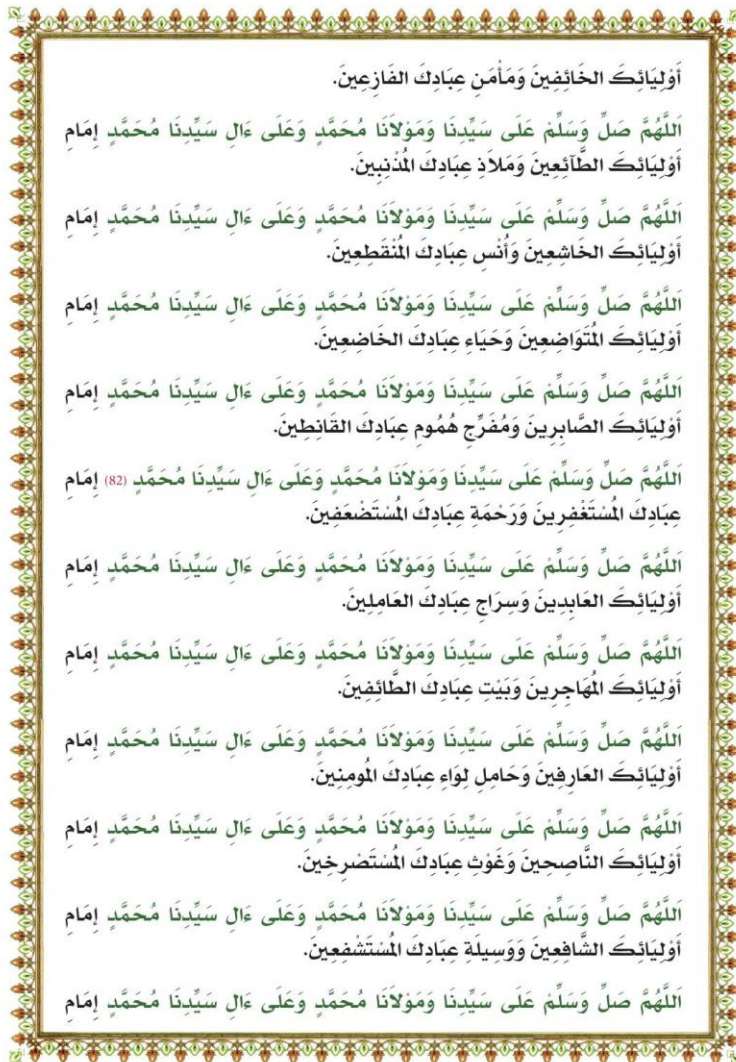 أَوْلِيَائِكَ الخَائِفِينَ وَمَأْمَنِ عِبَادِكَ الفَازِعِينَ.
اَللَّهُمَّ صَلِّ وَسَلِّمْ عَلَى سَيِّدِنَا وَمَوْلَانَا مُحَمَّدٍ وَعَلَى ءَالِ سَيِّدِنَا مُحَمَّدٍ إِمَامِ
أَوْلِيَائِكَ الطَّآئِعِينَ وَمَلَاذِ عِبَادِكَ المُذْنِبِينَ.
اَللَّهُمَّ صَلِّ وَسَلِّمْ عَلَى سَيِّدِنَا وَمَوْلَانَا مُحَمَّدٍ وَعَلَى ءَالِ سَيِّدِنَا مُحَمَّدٍ إِمَامِ
أَوْلِيَائِكَ الخَاشِعِينَ وَأُنْسِ عِبَادِكَ المُنْقَطِعِينَ.
اَللَّهُمَّ صَلِّ وَسَلِّمْ عَلَى سَيِّدِنَا وَمَوْلَانَا مُحَمَّدٍ وَعَلَى ءَالِ سَيِّدِنَا مُحَمَّدٍ إِمَامِ
أَوْلِيَائِكَ المُتَوَاضِعِينَ وَحَيَاءِ عِبَادِكَ الخَاضِعِينَ.
اَللَّهُمَّ صَلِّ وَسَلِّمْ عَلَى سَيِّدِنَا وَمَوْلَانَا مُحَمَّدٍ وَعَلَى ءَالِ سَيِّدِنَا مُحَمَّدٍ إِمَامِ
أَوْلِيَائِكَ الصَّابِرِينَ وَمُفَرِّجِ هُمُومِ عِبَادِكَ القَانِطِينَ.
اَللَّهُمَّ صَلِّ وَسَلِّمْ عَلَى سَيِّدِنَا وَمَوْلَانَا مُحَمَّدٍ وَعَلَى ءَالِ سَيِّدِنَا مُحَمَّدٍ (82) إِمَامِ
عِبَادِكَ المُسْتَغْفِرِينَ وَرَحْمَةِ عِبَادِكَ المُسْتَضْعَفِينَ.
اَللَّهُمَّ صَلِّ وَسَلِّمْ عَلَى سَيِّدِنَا وَمَوْلَانَا مُحَمَّدٍ وَعَلَى ءَالِ سَيِّدِنَا مُحَمَّدٍ إِمَامِ
أَوْلِيَائِكَ العَابِدِينَ وَسِرَاجِ عِبَادِكَ العَامِلِينَ.
اَللَّهُمَّ صَلِّ وَسَلِّمْ عَلَى سَيِّدِنَا وَمَوْلَانَا مُحَمَّدٍ وَعَلَى ءَالِ سَيِّدِنَا مُحَمَّدٍ إِمَامِ
أَوْلِيَائِكَ المُهَاجِرِينَ وَبَيْتِ عِبَادِكَ الطَّائِفِينَ.
اَللَّهُمَّ صَلِّ وَسَلِّمْ عَلَى سَيِّدِنَا وَمَوْلَانَا مُحَمَّدٍ وَعَلَى ءَالِ سَيِّدِنَا مُحَمَّدٍ إِمَامِ
أَوْلِيَائِكَ العَارِفِينَ وَحَامِلِ لِوَاءِ عِبَادِكَ المُومِنِينَ.
اَللَّهُمَّ صَلِّ وَسَلِّمْ عَلَى سَيِّدِنَا وَمَوْلَانَا مُحَمَّدٍ وَعَلَى ءَالِ سَيِّدِنَا مُحَمَّدٍ إِمَامِ
أَوْلِيَائِكَ النَّاصِحِينَ وَغَوْثِ عِبَادِكَ المُسْتَصْرِخِينَ.
اَللَّهُمَّ صَلِّ وَسَلِّمْ عَلَى سَيِّدِنَا وَمَوْلَانَا مُحَمَّدٍ وَعَلَى ءَالِ سَيِّدِنَا مُحَمَّدٍ إِمَامِ
أَوْلِيَائِكَ الشَّافِعِينَ وَوَسِيلَةِ عِبَادِكَ المُسْتَشْفِعِينَ.
اَللَّهُمَّ صَلِّ وَسَلِّمْ عَلَى سَيِّدِنَا وَمَوْلَانَا مُحَمَّدٍ وَعَلَى ءَالِ سَيِّدِنَا مُحَمَّدٍ إِمَامِ